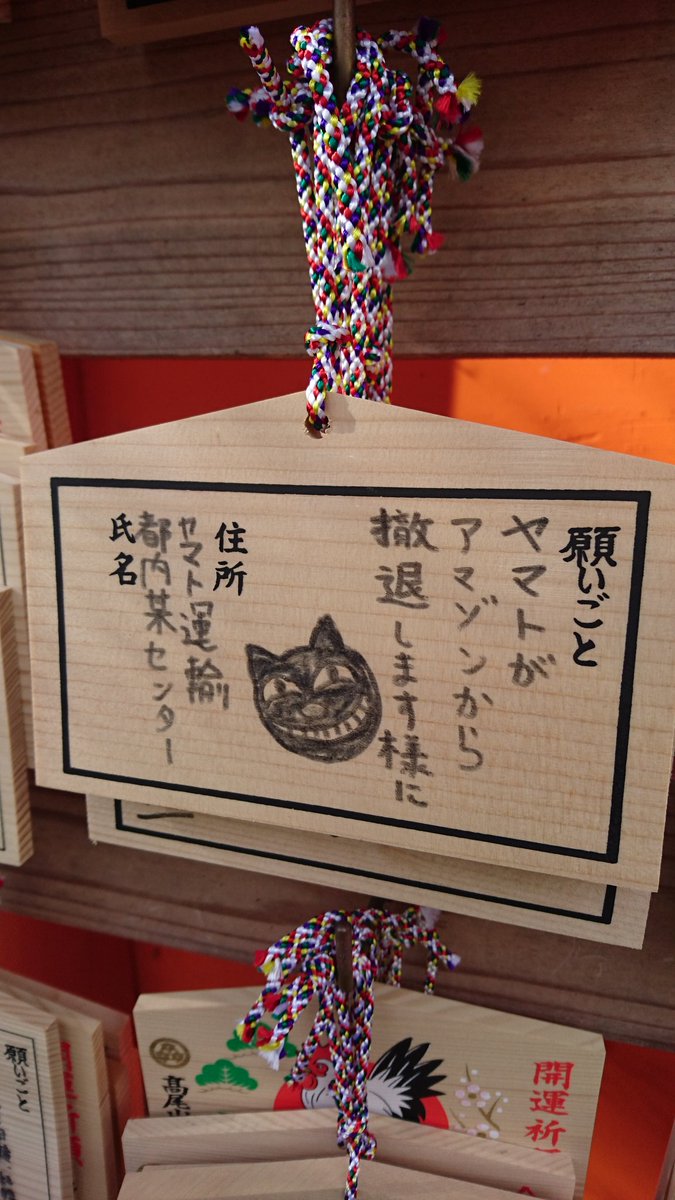 願いごと
ヤマトが
アマゾンから
撤退します様に
住所
ヤマト運輸
都内某センター
氏名
願いごと
高尾山
開運祈